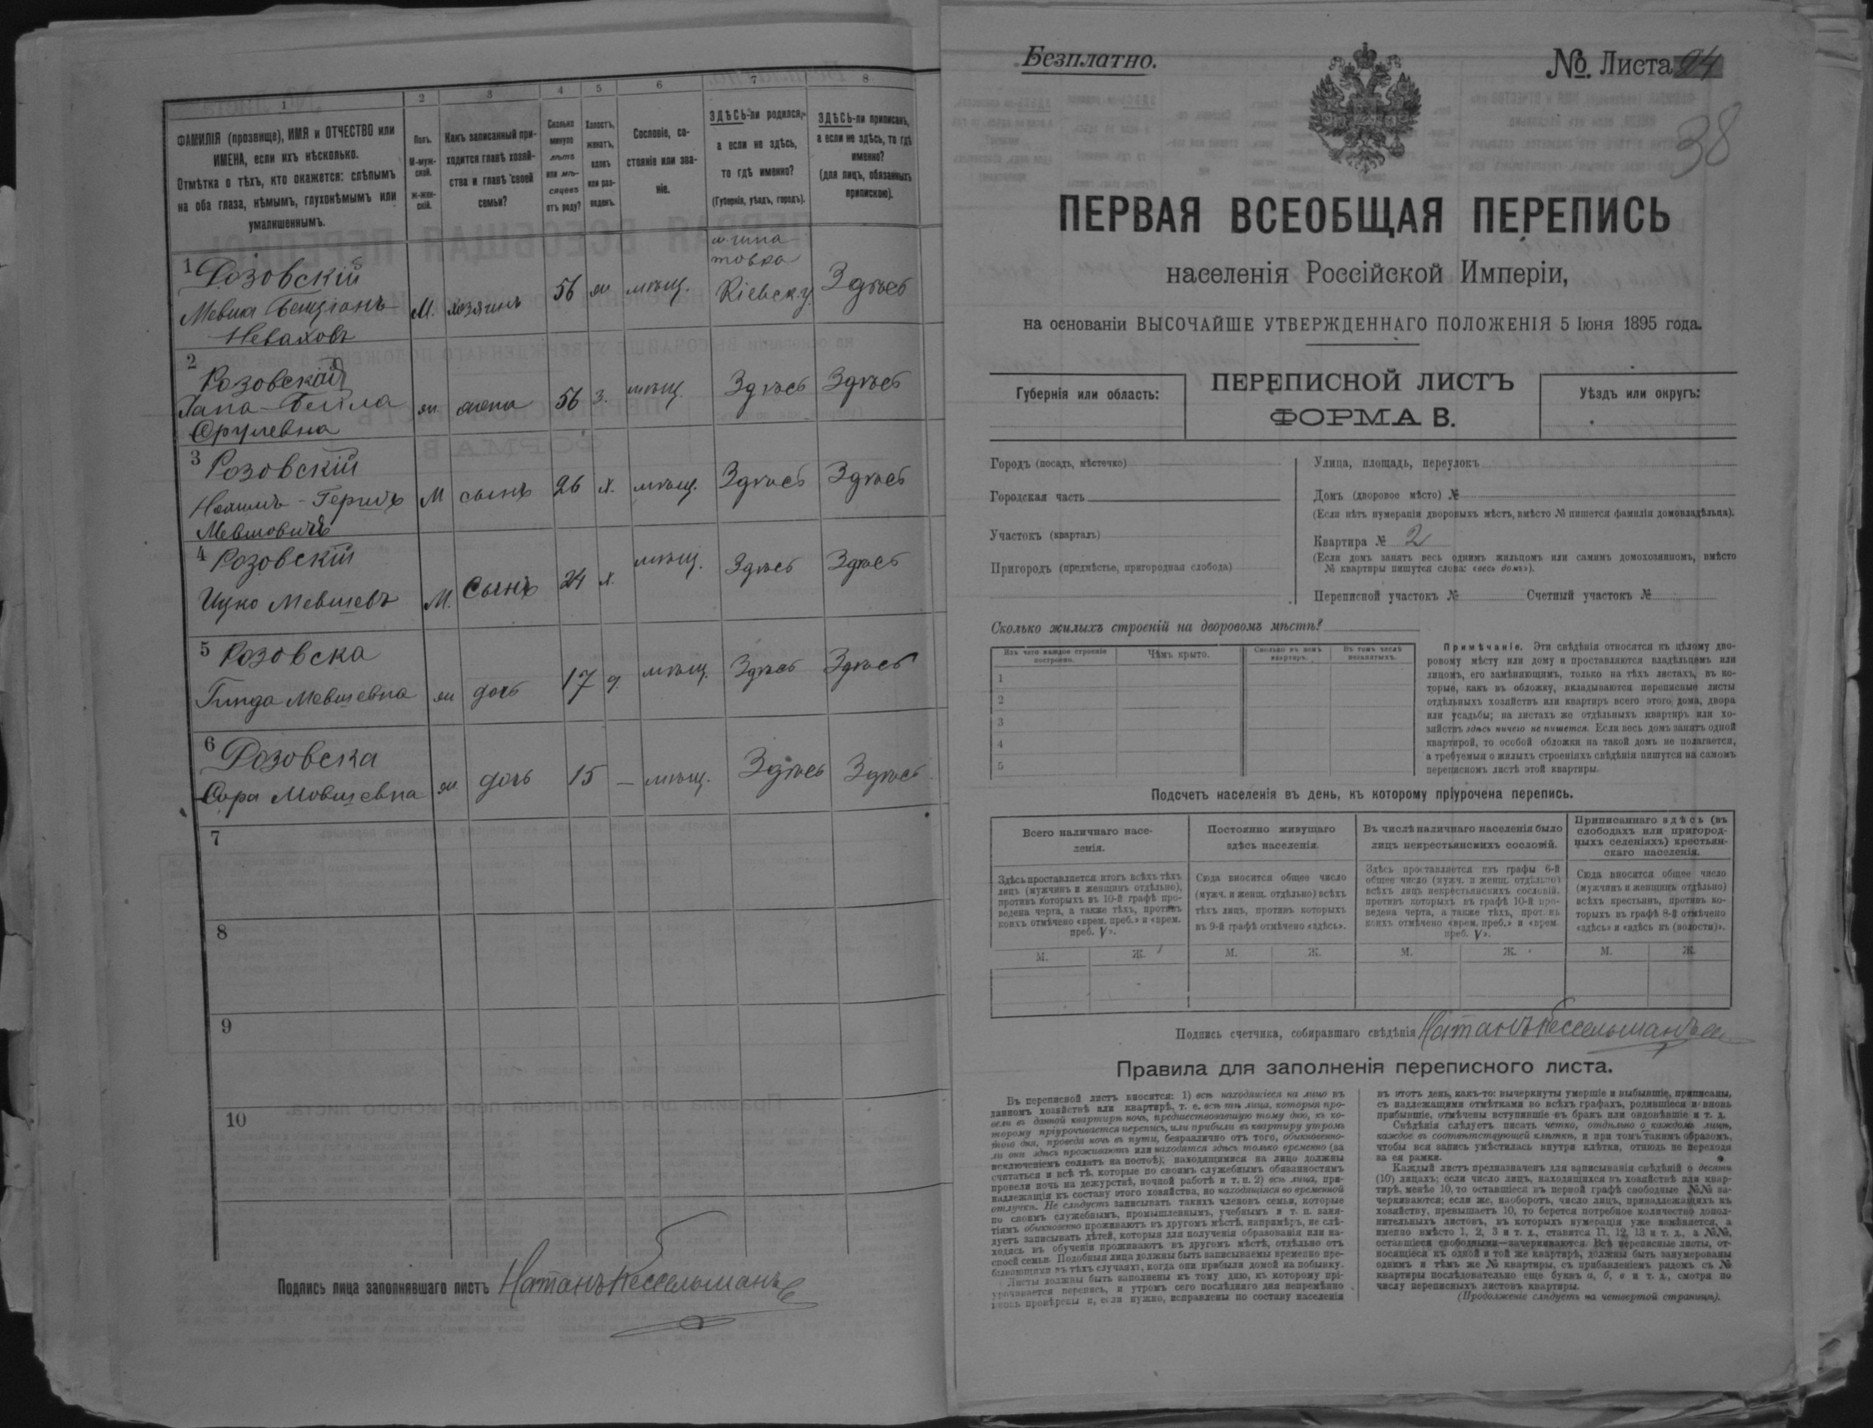 1
2
3
4
5
6
7
8
ФАМИЛІЯ (прозвище), ИМЯ и ОТЧЕСТВО или
ИМЕНА, если ихъ нѣсколько.
Отмѣтка о тѣхъ, кто окажется: слѣпымъ
на оба глаза, нѣмымъ, глухонѣмымъ или
умалишеннымъ.
Полъ.
М-муж-
ской.
ж-жен-
скій.
Какъ записанный при-
ходится главѣ хозяй-
ства и главѣ своей
семьи?
Сколько
минуло
лѣтъ
или мѣ-
сяцевъ
отъ роду?
Холостъ,
женатъ,
вдовъ
или раз-
веденъ.
Сословіе, со-
стояніе или зва-
ніе.
ЗДѢСЬ-ли родился,
а если не здѣсь,
то гдѣ именно?
(Губернія, уѣздъ, городъ).
ЗДѢСЬ-ли приписанъ,
а если не здѣсь, то гдѣ
именно?
(для лицъ, обязанныхъ
припискою).
1 Розовскій
Неваховъ
М. хозяинъ 56 ж мѣщ. Кіевск.у. Здѣсь
2 Розовскій
Хана-Бейла
Срулевна
ж жена 56 з. мѣщ. Здѣсь Здѣсь
3 Розовскій
Нохимъ-Гершъ
Мевшовичъ
М сынъ 26 х. мѣщ. Здѣсь Здѣсь
4 Розовскій
Ицко Мевшевъ
М. Сынъ 24 х. мѣщ. Здѣсь Здѣсь
5 Розовска
Гинда Мевшевна
ж дочь 17 д. мѣщ. Здѣсь Здѣсь
6 Розовска
Сора Мовшевна
ж дочь 15 — мѣщ. Здѣсь Здѣсь
7
8
9
10
Подпись лица заполнявшаго листъ Натанъ Кессельманъ
Безплатно.
№ Листа 24
38
ПЕРВАЯ ВСЕОБЩАЯ ПЕРЕПИСЬ
населенія Россійской Имперіи,
на основаніи ВЫСОЧАЙШЕ УТВЕРЖДЕННАГО ПОЛОЖЕНІЯ 5 Іюня 1895 года.
Губернія или область:
ПЕРЕПИСНОЙ ЛИСТЪ
ФОРМА В.
Уѣздъ или округъ:
Городъ (посадъ, мѣстечко)
Городская часть
Участокъ (кварталъ)
Пригородъ (предмѣстье, пригородная слобода)
Улица, площадь, переулокъ
Домъ (дворовое мѣсто) №
(Если нѣтъ нумераціи дворовыхъ мѣстъ, вмѣсто № пишется фамилія домовладѣльца).
Квартира № 2
(Если домъ занятъ весь однимъ жильцомъ или самимъ домохозяиномъ, вмѣсто
№ квартиры пишутся слова: «весь домъ»).
Переписной участокъ № Счетный участокъ №
Сколько жилыхъ строеній на дворовомъ мѣстѣ?
Изъ чего каждое строеніе
построено.
Чѣмъ крыто.
Сколько въ немъ
квартиръ.
Въ томъ числѣ
незанятыхъ.
1
2
3
4
5
Примѣчаніе. Эти свѣдѣнія относятся къ цѣлому дво-
ровому мѣсту или дому и проставляются владѣльцемъ или
лицомъ, его замѣняющимъ, только на тѣхъ листахъ, въ ко-
торые, какъ въ обложку, вкладываются переписные листы
отдѣльныхъ хозяйствъ или квартиръ всего этого дома, двора
или усадьбы; на листахъ же отдѣльныхъ квартиръ или хо-
зяйствъ здѣсь ничего не пишется. Если весь домъ занятъ одной
квартирой, то особой обложки на такой домъ не полагается,
а требуемыя о жилыхъ строеніяхъ свѣдѣнія пишутся на самомъ
переписномъ листѣ этой квартиры.
Подсчетъ населенія въ день, къ которому пріурочена перепись.
Всего наличнаго насе-
ленія.
Постоянно живущаго
здѣсь населенія.
Въ числѣ наличнаго населенія было
лицъ некрестьянскихъ сословій.
Приписаннаго здѣсь (въ
слободахъ или пригород-
ныхъ селеніяхъ) крестьян-
скаго населенія.
Здѣсь проставляется итогъ всѣхъ тѣхъ
лицъ (мужчинъ и женщинъ отдѣльно),
противъ которыхъ въ 10-й графѣ про-
ведена черта, а также тѣхъ, противъ
коихъ отмѣчено «врем. преб.» и «врем.
преб. V».
Сюда вносится общее число
(мужч. и женщ. отдѣльно) всѣхъ
тѣхъ лицъ, противъ которыхъ
въ 9-й графѣ отмѣчено «здѣсь».
Здѣсь проставляется изъ графы 6-й
общее число (мужч. и женщ. отдѣльно)
всѣхъ лицъ некрестьянскихъ сословій,
противъ которыхъ въ графѣ 10-й про-
ведена черта, а также тѣхъ, противъ
коихъ отмѣчено «врем. преб.» и «врем.
преб. V».
Сюда вносится общее число
(мужчинъ и женщинъ отдѣльно)
всѣхъ крестьянъ, противъ ко-
торыхъ въ графѣ 8-й отмѣчено
«здѣсь» и «здѣсь къ (волости)».
М. Ж. М. Ж. М. Ж. М. Ж.
Подпись счетчика, собиравшаго свѣдѣнія Натанъ Кессельманъ
Правила для заполненія переписного листа.
Въ переписной листъ вносятся: 1) всѣ находящіеся на лицо въ
данномъ хозяйствѣ или квартирѣ, т. е. всѣ тѣ лица, которыя про-
вели въ данной квартирѣ ночь, предшествовавшую тому дню, къ ко-
торому пріурочивается перепись, или прибыли въ квартиру утромъ
того дня, проведя ночь въ пути, безразлично отъ того, обыкновенно-
ли они здѣсь проживаютъ или находятся здѣсь только временно (за
исключеніемъ солдатъ на постоѣ); находящимися на лицо должны
считаться и всѣ тѣ, которые по своимъ служебнымъ обязанностямъ
провели ночь на дежурствѣ, ночной работѣ и т. п. 2) всѣ лица, при-
надлежащія къ составу этого хозяйства, но находящіяся во временной
отлучкѣ. Не слѣдуетъ записывать такихъ членовъ семьи, которые
по своимъ служебнымъ, промышленнымъ, учебнымъ и т. п. заня-
тіямъ обыкновенно проживаютъ въ другомъ мѣстѣ, напримѣръ, не слѣ-
дуетъ записывать дѣтей, которыя для полученія образованія или на-
ходясь въ обученіи проживаютъ въ другомъ мѣстѣ, отдѣльно отъ
своей семьи. Подобныя лица должны быть записываемы временно пре-
бывающими въ тѣхъ случаяхъ, когда они прибыли домой на побывку.
Листы должны быть заполнены къ тому дню, къ которому прі-
урочивается перепись, и утромъ сего послѣдняго дня непремѣнно
вновь провѣрены и, если нужно, исправлены по составу населенія
въ этотъ день, какъ-то: вычеркнуты умершіе и выбывшіе, приписаны,
съ надлежащими отмѣтками во всѣхъ графахъ, родившіеся и вновь
прибывшіе, отмѣчены вступившіе въ бракъ или овдовѣвшіе и т. д.
Свѣдѣнія слѣдуетъ писать четко, отдѣльно о каждомъ лицѣ,
каждое въ соотвѣтствующей клѣткѣ, и при томъ такимъ образомъ,
чтобы вся запись умѣстилась внутри клѣтки, отнюдь не переходя
за ея рамки.
Каждый листъ предназначенъ для записыванія свѣдѣній о десяти
(10) лицахъ; если число лицъ, находящихся въ хозяйствѣ или квар-
тирѣ, менѣе 10, то оставшіеся въ первой графѣ свободные №№ за-
черкиваются; если же, наоборотъ, число лицъ, принадлежащихъ къ
хозяйству, превышаетъ 10, то берется потребное количество допол-
нительныхъ листовъ, въ которыхъ нумерація уже измѣняется, а
именно вмѣсто 1, 2, 3 и т. д., ставится 11, 12, 13 и т. д., а №№,
оставшіеся свободными—зачеркиваются. Всѣ переписные листы, от-
носящіеся къ одной и той же квартирѣ, должны быть занумерованы
однимъ и тѣмъ же № квартиры, съ прибавленіемъ рядомъ съ №
квартиры послѣдовательно еще буквъ а, б, в и т. д., смотря по
числу переписныхъ листовъ квартиры.
(Продолженіе слѣдуетъ на четвертой страницѣ).